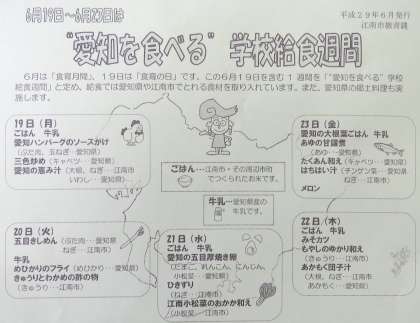 6月19日～6月23日は
平成29年6月発行
江南市教育課
"愛知を食べる" 学校給食週間
6月は「食育月間」、19日は「食育の日」です。この6月19日を含む1週間を「"愛知を食べる"学校
給食週間」と定め、給食では愛知県や江南市でとれる食材を取り入れています。また、愛知県の郷土料理も実
施します。
19日(月)
ごはん 牛乳
愛知ハンバーグのソースがけ
(ぶた肉、玉ねぎ・愛知県)
三色炒め (キャベツ・愛知県)
愛知の恵み汁 (大根、ねぎ・江南市
いわし・愛知県)
ごはん…江南市・その周辺市町
でつくられたお米です。
牛乳…愛知県産の
牛乳です。
23日(金)
愛知の大根葉ごはん 牛乳
あゆの甘露煮
(あゆ・愛知県)
たくあん和え (キャベツ・愛知県)
はちはい汁 (チンゲン菜・愛知県
ねぎ・江南市)
メロン
20日(火)
五目きしめん (ぶた肉…愛知県
ねぎ…江南市)
牛乳
めひかりのフライ (めひかり・愛知県)
きゅうりとわかめの酢の物
(きゅうり…江南市)
21日(水)
ごはん 牛乳
愛知の五目厚焼き卵
(たまご、れんこん、にんじん、
小松菜・愛知県)
ひきずり
(ねぎ・江南市)
江南小松菜のおかか和え
(小松菜・江南市)
22日(木)
ごはん 牛乳
みそカツ
もやしのゆかり和え
(きゅうり・江南市)
あかもく団子汁
(大根、ねぎ・江南市
あかもく・愛知県)